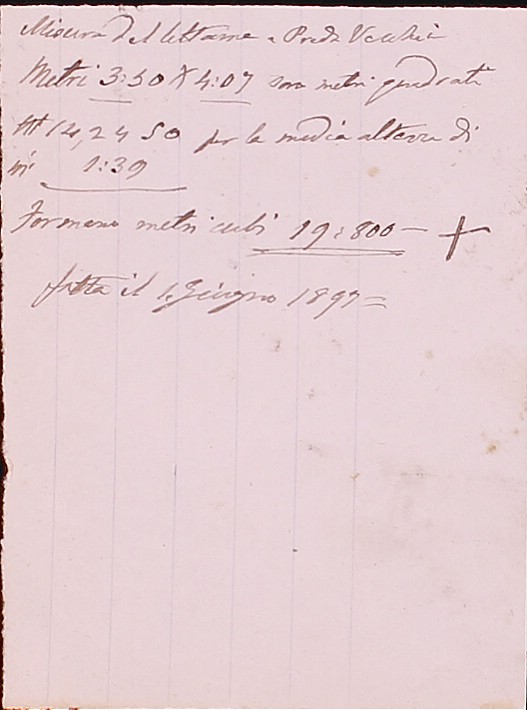 Misura del lettame a Preda Vecchia
Metri 3:50 X 4:07 sono metri quadrati
M 14,24 50 per la media altezza di
m 1:39
Formano metri cubi 19:800 — +
fatta il 1. Giugno 1897 =